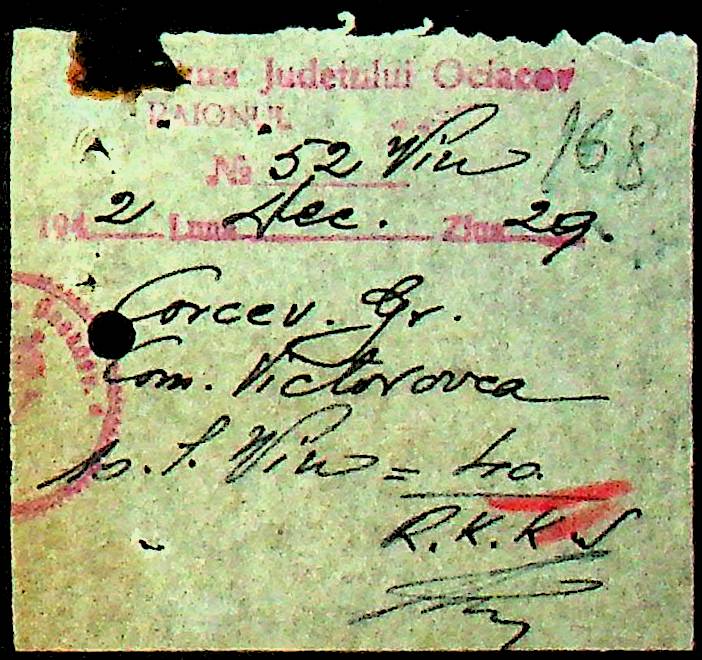 Judeţului Ociacov
RAIONUL
168
№ 52 Vin
194 2 Luna Dec. Ziua 29.
Corcev. Gr.
Com. Victorovca
10. l. Vin =
R.K.K.S